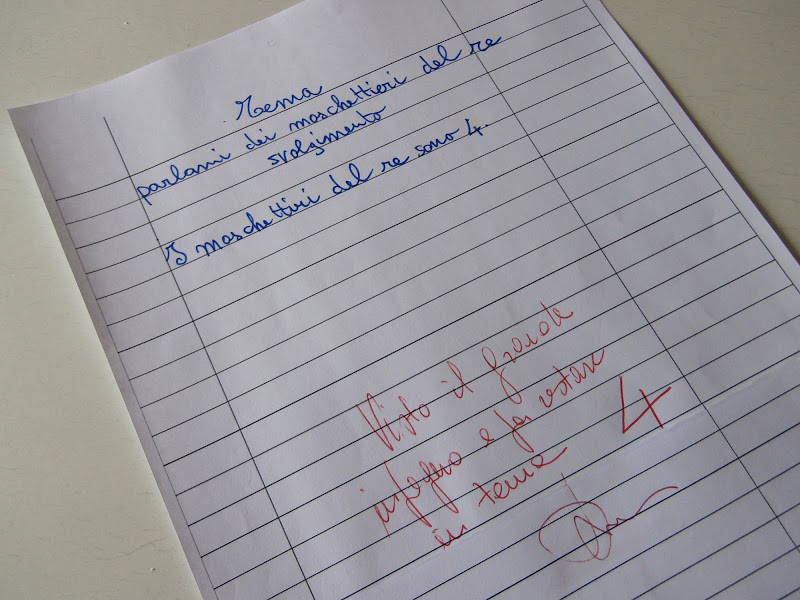 Tema
parlami dei moschettieri del re
svolgimento
I moschettiri del re sono 4.
Visto il grande
impegno e per restare
in tema
4